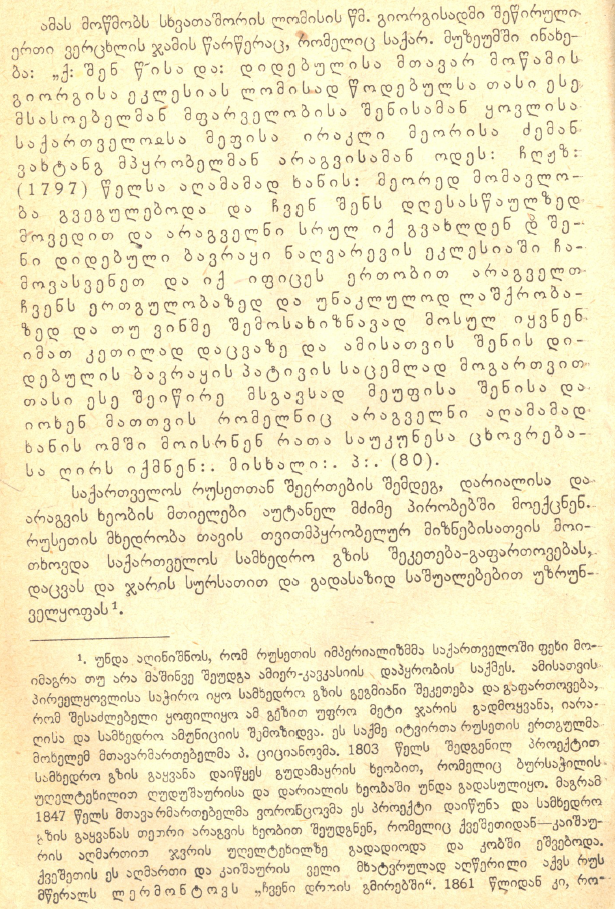 ამას მოწმობს სხვათაშორის ლომისის წმ. გიორგისადმი შეწირული
ერთი ვერცხლის ჯამის წარწერაც, რომელიც საქარ. მუზეუმში ინახე-
ბა: „ქ: შენ წ~ისა და: დიდებულისა მთავარ მოწამის
გიორგისა ეკლესიას ლომისად წოდებულსა თასი ესე
მსასოებელმან მფარველობისა შენისამან ყოვლისა
საქართველოჲსა მეფისა ირაკლი მეორისა ძემან
ვახტანგ მპყრობელმან არაგვისამან ოდეს: ჩღჟზ:
(1797) წელსა აღამამად ხანის: მეორედ მომავლო-
ბა გვეგულებოდა და ჩვენ შენს დღესასწაულზედ
მოვედით და არაგველნი სრულ იქ გვახლდენ დ შე-
ნი დიდებული ბავრაყი ნაღვარევის ეკლესიაში ჩა-
მოვასვენეთ და იქ იფიცეს ერთობით არაგველთ
ჩვენს ერთგულობაზედ და უნაკლულოდ ლაშქრობა-
ზედ და თუ ვინმე შემოსახიზნავად მოსულ იყვნენ
იმათ კეთილად დაცვაზე და ამისათვის შენის დი-
დებულის ბავრაყის პატივის საცემლად მოგართვით
თასი ესე შეიწირე მსგავსად მეუფისა შენისა და
იოხენ მათთვის რომელნიც არაგველნი აღამამად
ხანის ომში მოისრნენ რათა საუკუნესა ცხოვრება-
სა ღირს იქმნენ:. მისხალი:. პ:. (80).
საქართველოს რუსეთთან შეერთების შემდეგ, დარიალისა და
არაგვის ხეობის მთიელები აუტანელ მძიმე პირობებში მოექცნენ.
რუსეთის მხედრობა თავის თვითმპყრობელურ მიზნებისათვის მოი-
თხოვდა საქართველოს სამხედრო გზის შეკეთება-გაფართოვებას,
დაცვას და ჯარის სურსათით და გადასაზიდ საშუალებებით უზრუნ-
ველყოფას¹.
¹. უნდა აღინიშნოს, რომ რუსეთის იმპერიალიზმმა საქართველოში ფეხი მო-
იმაგრა თუ არა მაშინვე შეუდგა ამიერ-კავკასიის დაპყრობის საქმეს. ამისათვის
პირველყოვლისა საჭირო იყო სამხედრო გზის გეგმიანი შეკეთება და გაფართოვება,
რომ შესაძლებელი ყოფილიყო ამ გზით უფრო მეტი ჯარის გადმოყვანა, იარა-
ღისა და სამხედრო ამუნიციის შემოზიდვა. ეს საქმე იტვირთა რუსეთის ერთგულმა
მოხელემ მთავარმართებელმა პ. ციციანოვმა. 1803 წელს შედგენილ პროექტით
სამხედრო გზის გაყვანა დაიწყეს გუდამაყრის ხეობით, რომელიც ბურსაჭილის
უღელტეხილით ღუდუშაურისა და დარიალის ხეობაში უნდა გადასულიყო. მაგრამ
1847 წელს მთავარმართებელმა ვორონცოვმა ეს პროექტი დაიწუნა და სამხედრო
გზის გაყვანას თეთრი არაგვის ხეობით შეუდგნენ, რომელიც ქვეშეთიდან—კაიშაუ-
რის აღმართით ჯვრის უღელტეხილზე გადადიოდა და კობში ეშვებოდა.
ქვეშეთის ეს აღმართი და კაიშაურის ველი მხატვრულად აღწერილი აქვს რუს
მწერალს ლერმონტოვს „ჩვენი დროის გმირებში“. 1861 წლიდან კი, რო-